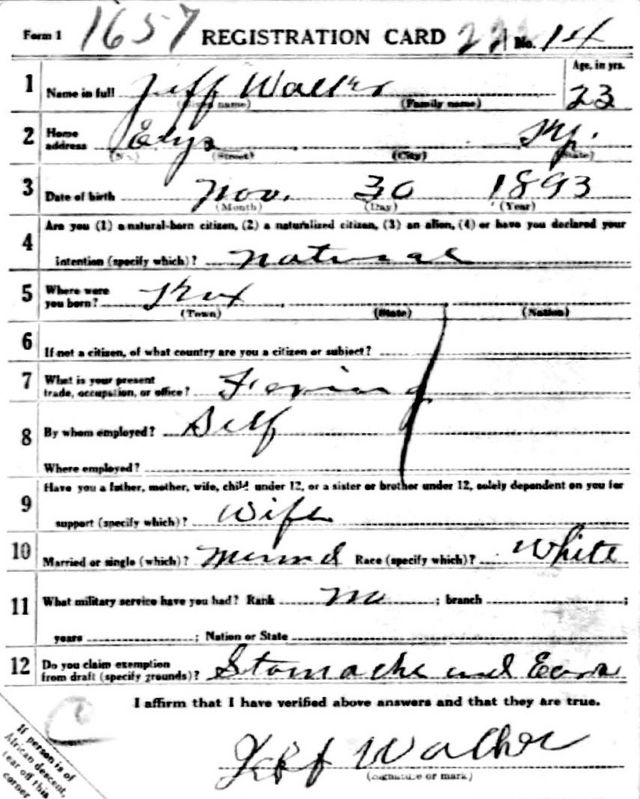 Form 1 1657 REGISTRATION CARD No. 14
1 Name in full Jeff Walker Age, in yrs. 23
(Given name) (Family name)
2 Home address Ky.
(No.) (Street) (City) (State)
3 Date of birth Nov. 30 1893
(Month) (Day) (Year)
4 Are you (1) a natural-born citizen, (2) a naturalized citizen, (3) an alien, (4) or have you declared your
intention (specify which)? natural
5 Where were you born?
(Town) (State) (Nation)
6 If not a citizen, of what country are you a citizen or subject?
7 What is your present trade, occupation, or office?
8 By whom employed? Self
Where employed?
9 Have you a father, mother, wife, child under 12, or a sister or brother under 12, solely dependent on you for
support (specify which)? Wife
10 Married or single (which)? Married Race (specify which)? White
11 What military service have you had? Rank no ; branch ;
years ; Nation or State
12 Do you claim exemption from draft (specify grounds)? Stomache and Ears
I affirm that I have verified above answers and that they are true.
Jeff Walker
(Signature or mark)
If person is of
African descent,
tear off this
corner